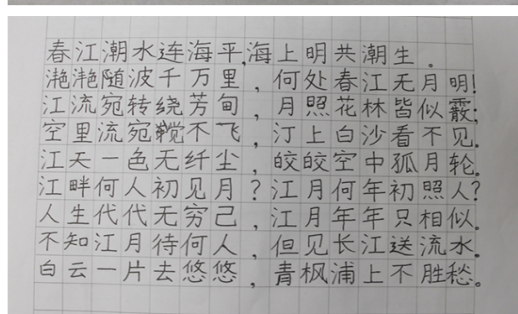 春江潮水连海平,海上明共潮生.
滟滟随波千万里,何处春江无月明!
江流宛转绕芳甸,月照花林皆似霰;
空里流宛觉不飞,汀上白沙看不见.
江天一色无纤尘,皎皎空中孤月轮.
江畔何人初见月?江月何年初照人?
人生代代无穷己,江月年年只相似.
不知江月待何人,但见长江送流水.
白云一片去悠悠,青枫浦上不胜愁。